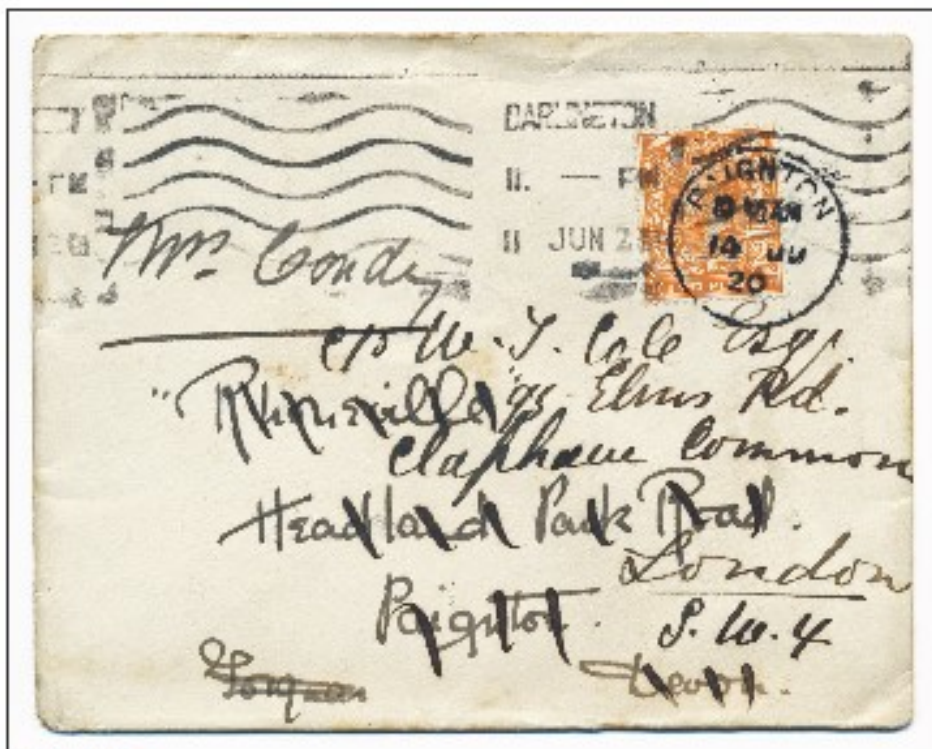 DARLINGTON
11. — PM
11 JUN 2
PAIGNTON
14 JU
20
Mrs. Condy
c/o W. J. Cole Esq.
Elms Rd.
Clapham Common
Headland Park Road.
London
Paignton.
S.W.4
Torquay
Devon.